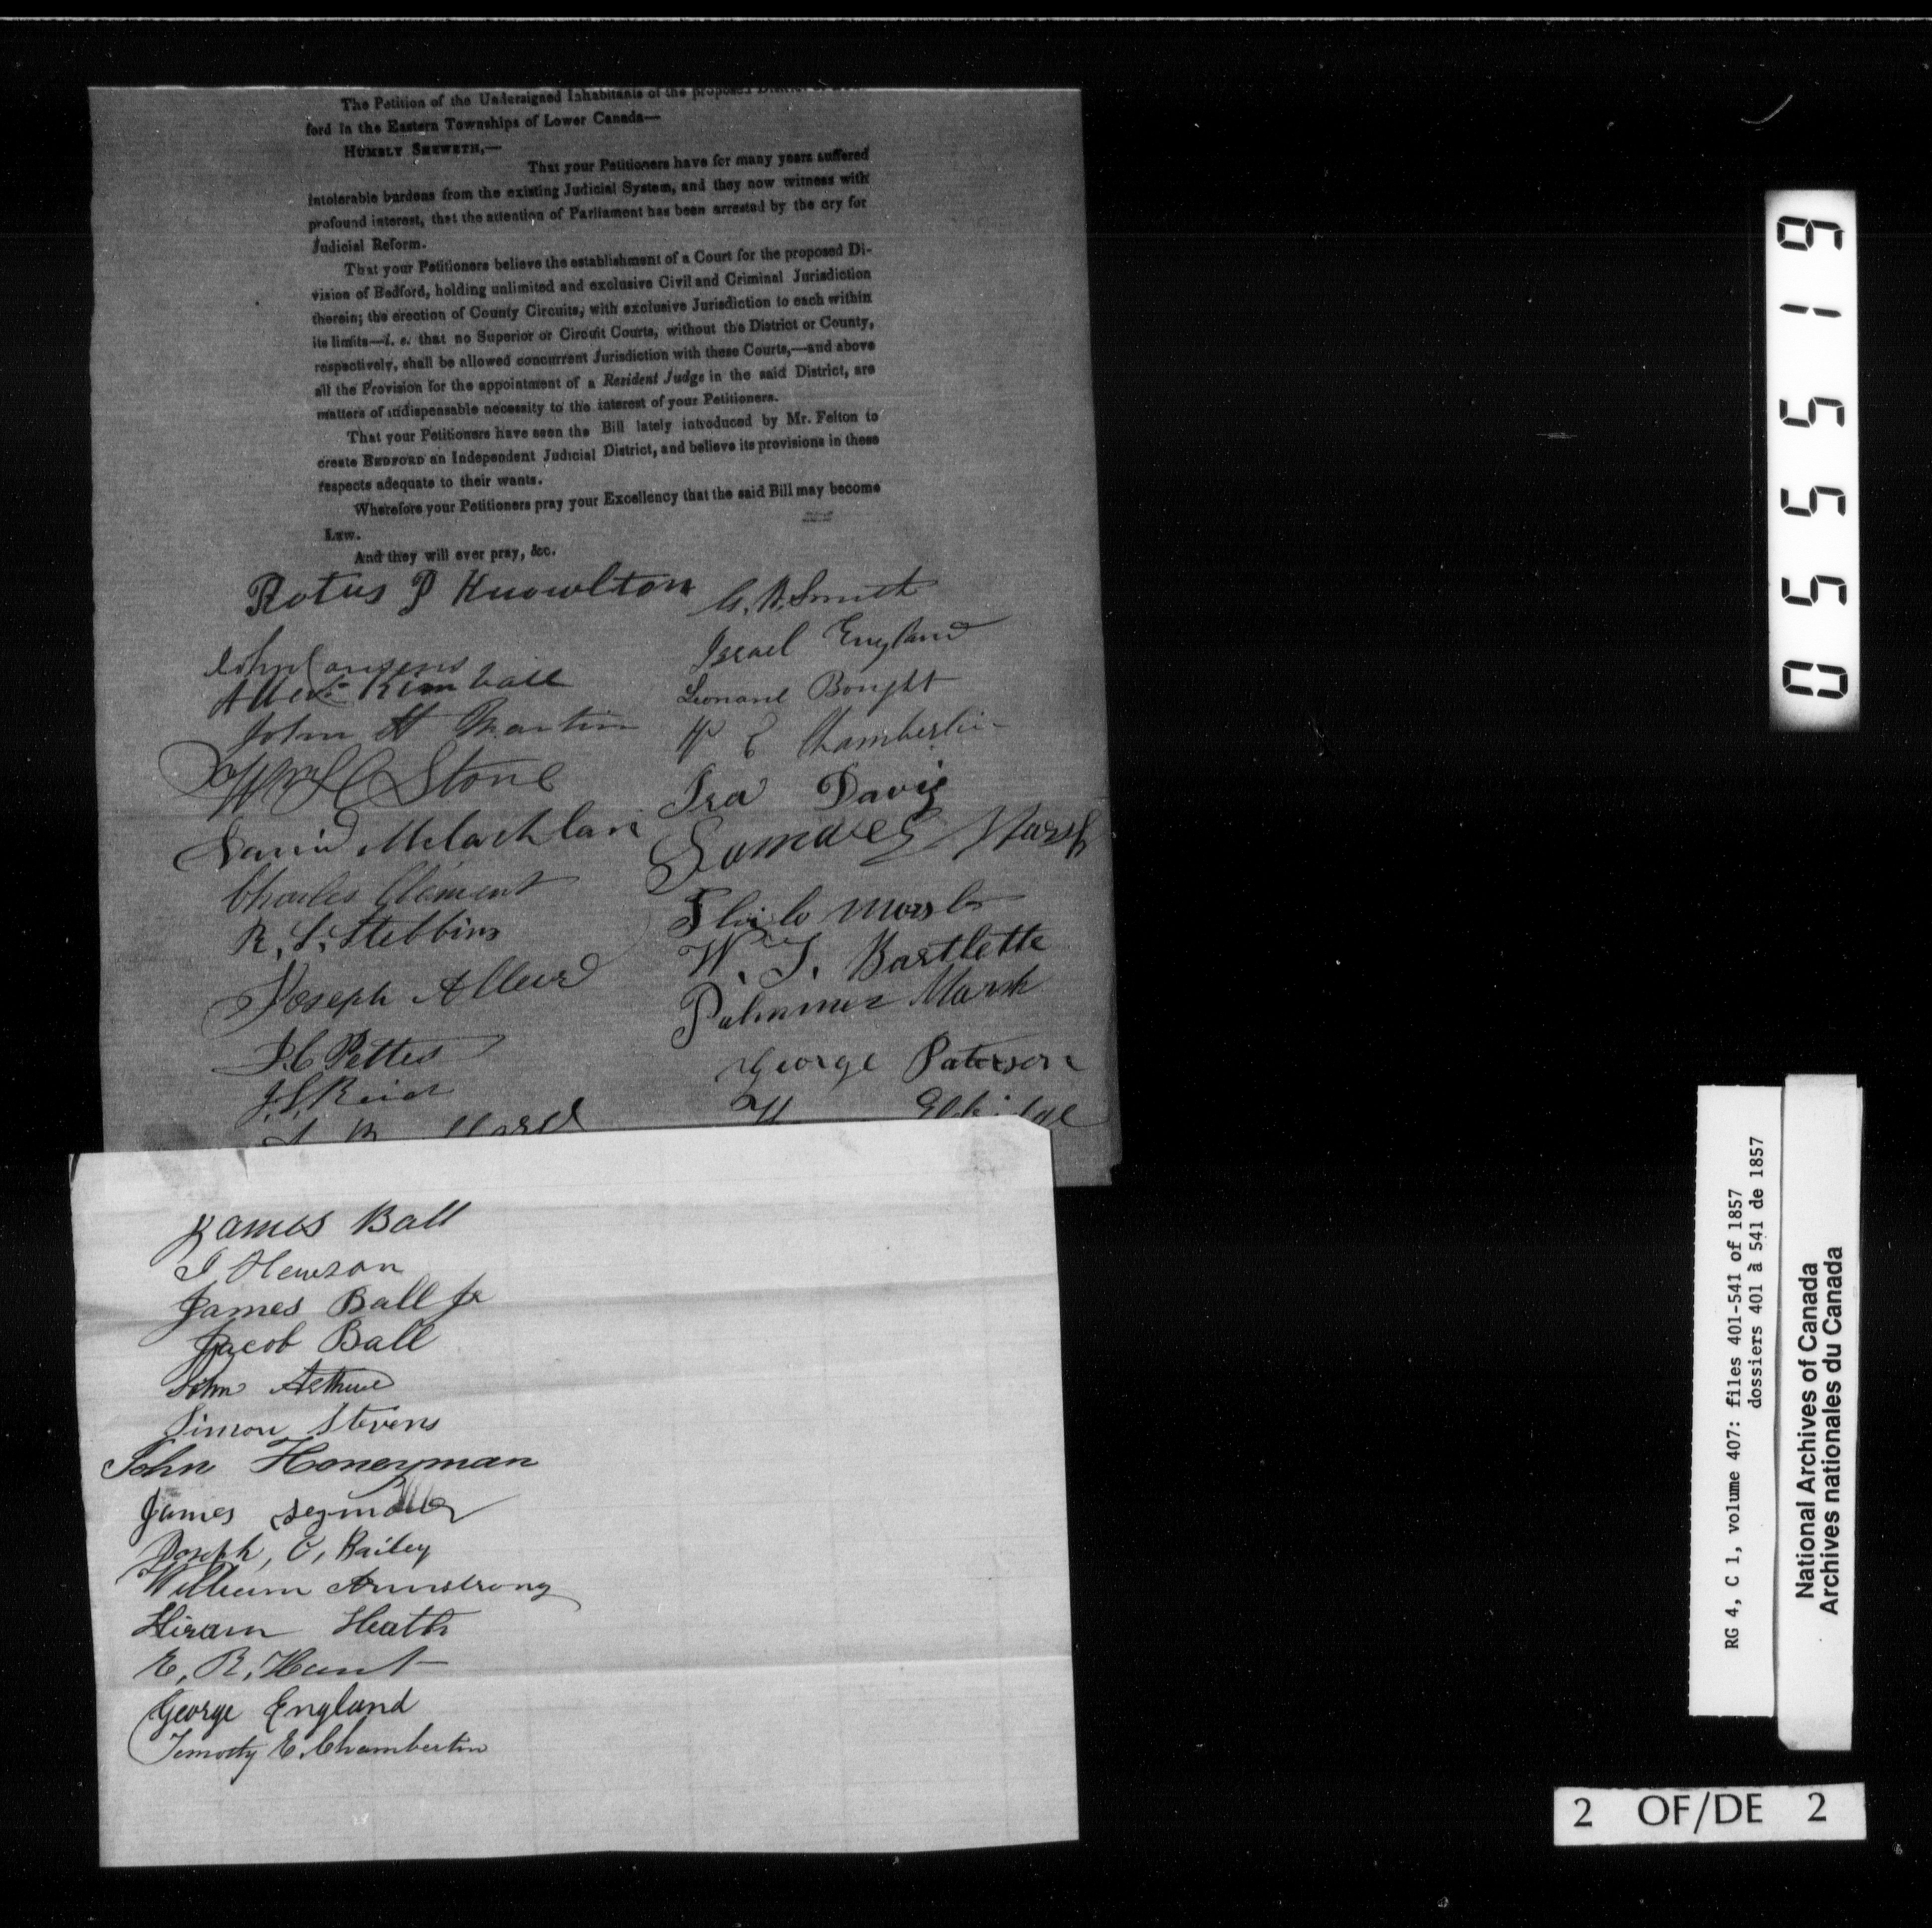 The Petition of the Undersigned Inhabitants of the proposed
ford in the Eastern Townships of Lower Canada—
HUMBLY SHEWETH,—
That your Petitioners have for many years suffered
intolerable burdens from the existing Judicial System, and they now witness with
profound interest, that the attention of Parliament has been arrested by the cry for
Judicial Reform.
That your Petitioners believe the establishment of a Court for the proposed Di-
vision of Bedford, holding unlimited and exclusive Civil and Criminal Jurisdiction
therein; the erection of County Circuits, with exclusive Jurisdiction to each within
its limits—i. e. that no Superior or Circuit Courts, without the District or County,
respectively, shall be allowed concurrent Jurisdiction with these Courts,—and above
all the Provision for the appointment of a Resident Judge in the said District, are
matters of indispensable necessity to the interest of your Petitioners.
That your Petitioners have seen the Bill lately introduced by Mr. Felton to
create BEDFORD an Independent Judicial District, and believe its provisions in these
respects adequate to their wants.
Wherefore your Petitioners pray your Excellency that the said Bill may become
Law.
And they will ever pray, &c.
Rotus P Knowlton
John
Kimball
John H Martin
Wm H Stone
David McLachlan
Charles Clement
R. S. Stebbins
Joseph Allard
J. C. Pettes
J. S. Reid
Smith
Israel England
Leonard Bought
Chamberlin
Ira Davis
Samuel Marsh
Philo Marsh
W. J. Bartlette
Palmmer Marsh
George Paterson
Eldridge
James Ball
J Hewson
James Ball Jr
Jacob Ball
John Arthur
Simon Stevens
John Honeyman
James Seymour
Joseph, C, Bailey
William Armstrong
Hiram Heath
E, R, Hunt
George England
Timothy E. Chamberlin
055519
RG 4, C 1, volume 407: files 401-541 of 1857
dossiers 401 à 541 de 1857
National Archives of Canada
Archives nationales du Canada
2 OF/DE 2